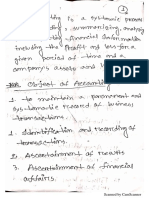 ting is a systematic process
summarizing, analysing
financial information
including the Profit and loss for a
given period of time and a
company's assets and
Object of Accounting
1. To maintain a permanent and
systematic record of business
transactions.
2. Identification and recording of
transactions.
3. Ascertainment of results
4. Ascertainment of financial
affairs.
Scanned by CamScanner